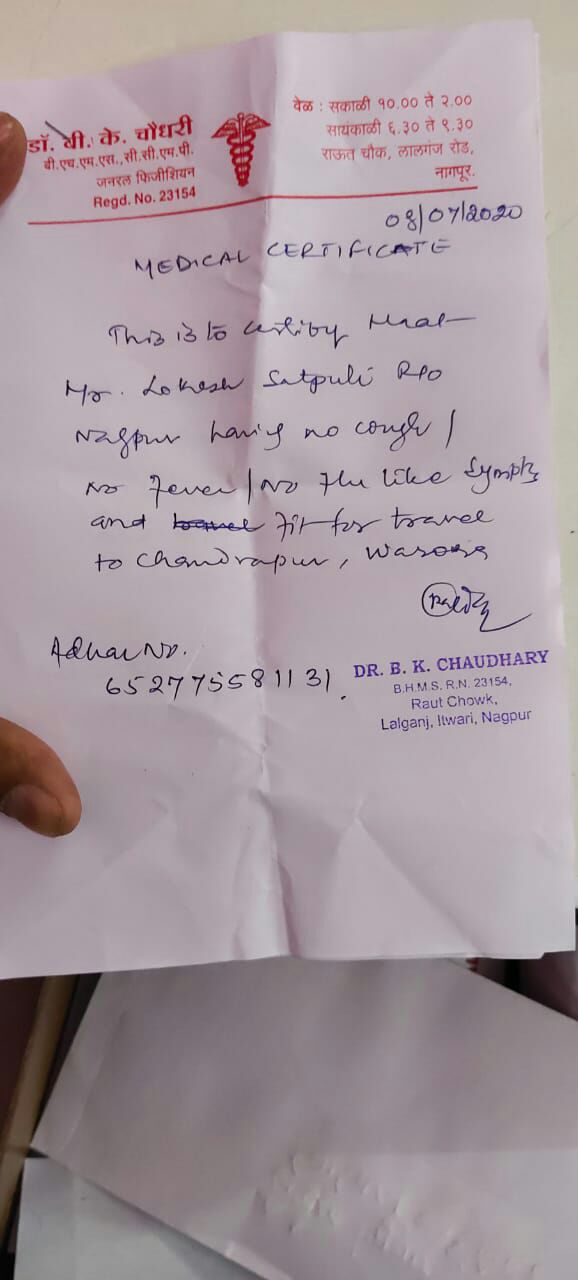 डॉ. बी. के. चौधरी
बी.एच.एम.एस.,सी.सी.एम.पी.
जनरल फिजीशियन
Regd. No. 23154
वेळ : सकाळी १०.०० ते २.००
सायंकाळी ६.३० ते ९.३०
राऊत चौक, लालगंज रोड,
नागपूर.
08/07/2020
MEDICAL CERTIFICATE
This is to certify that
Mr. Lokesh Satpuli R/o
Nagpur having no cough /
No Fever / No Flu like
and travel Fit for travel
to Chandrapur,
Adhar No.
652775581131.
DR. B. K. CHAUDHARY
B.H.M.S. R.N. 23154,
Raut Chowk,
Lalganj, Itwari, Nagpur